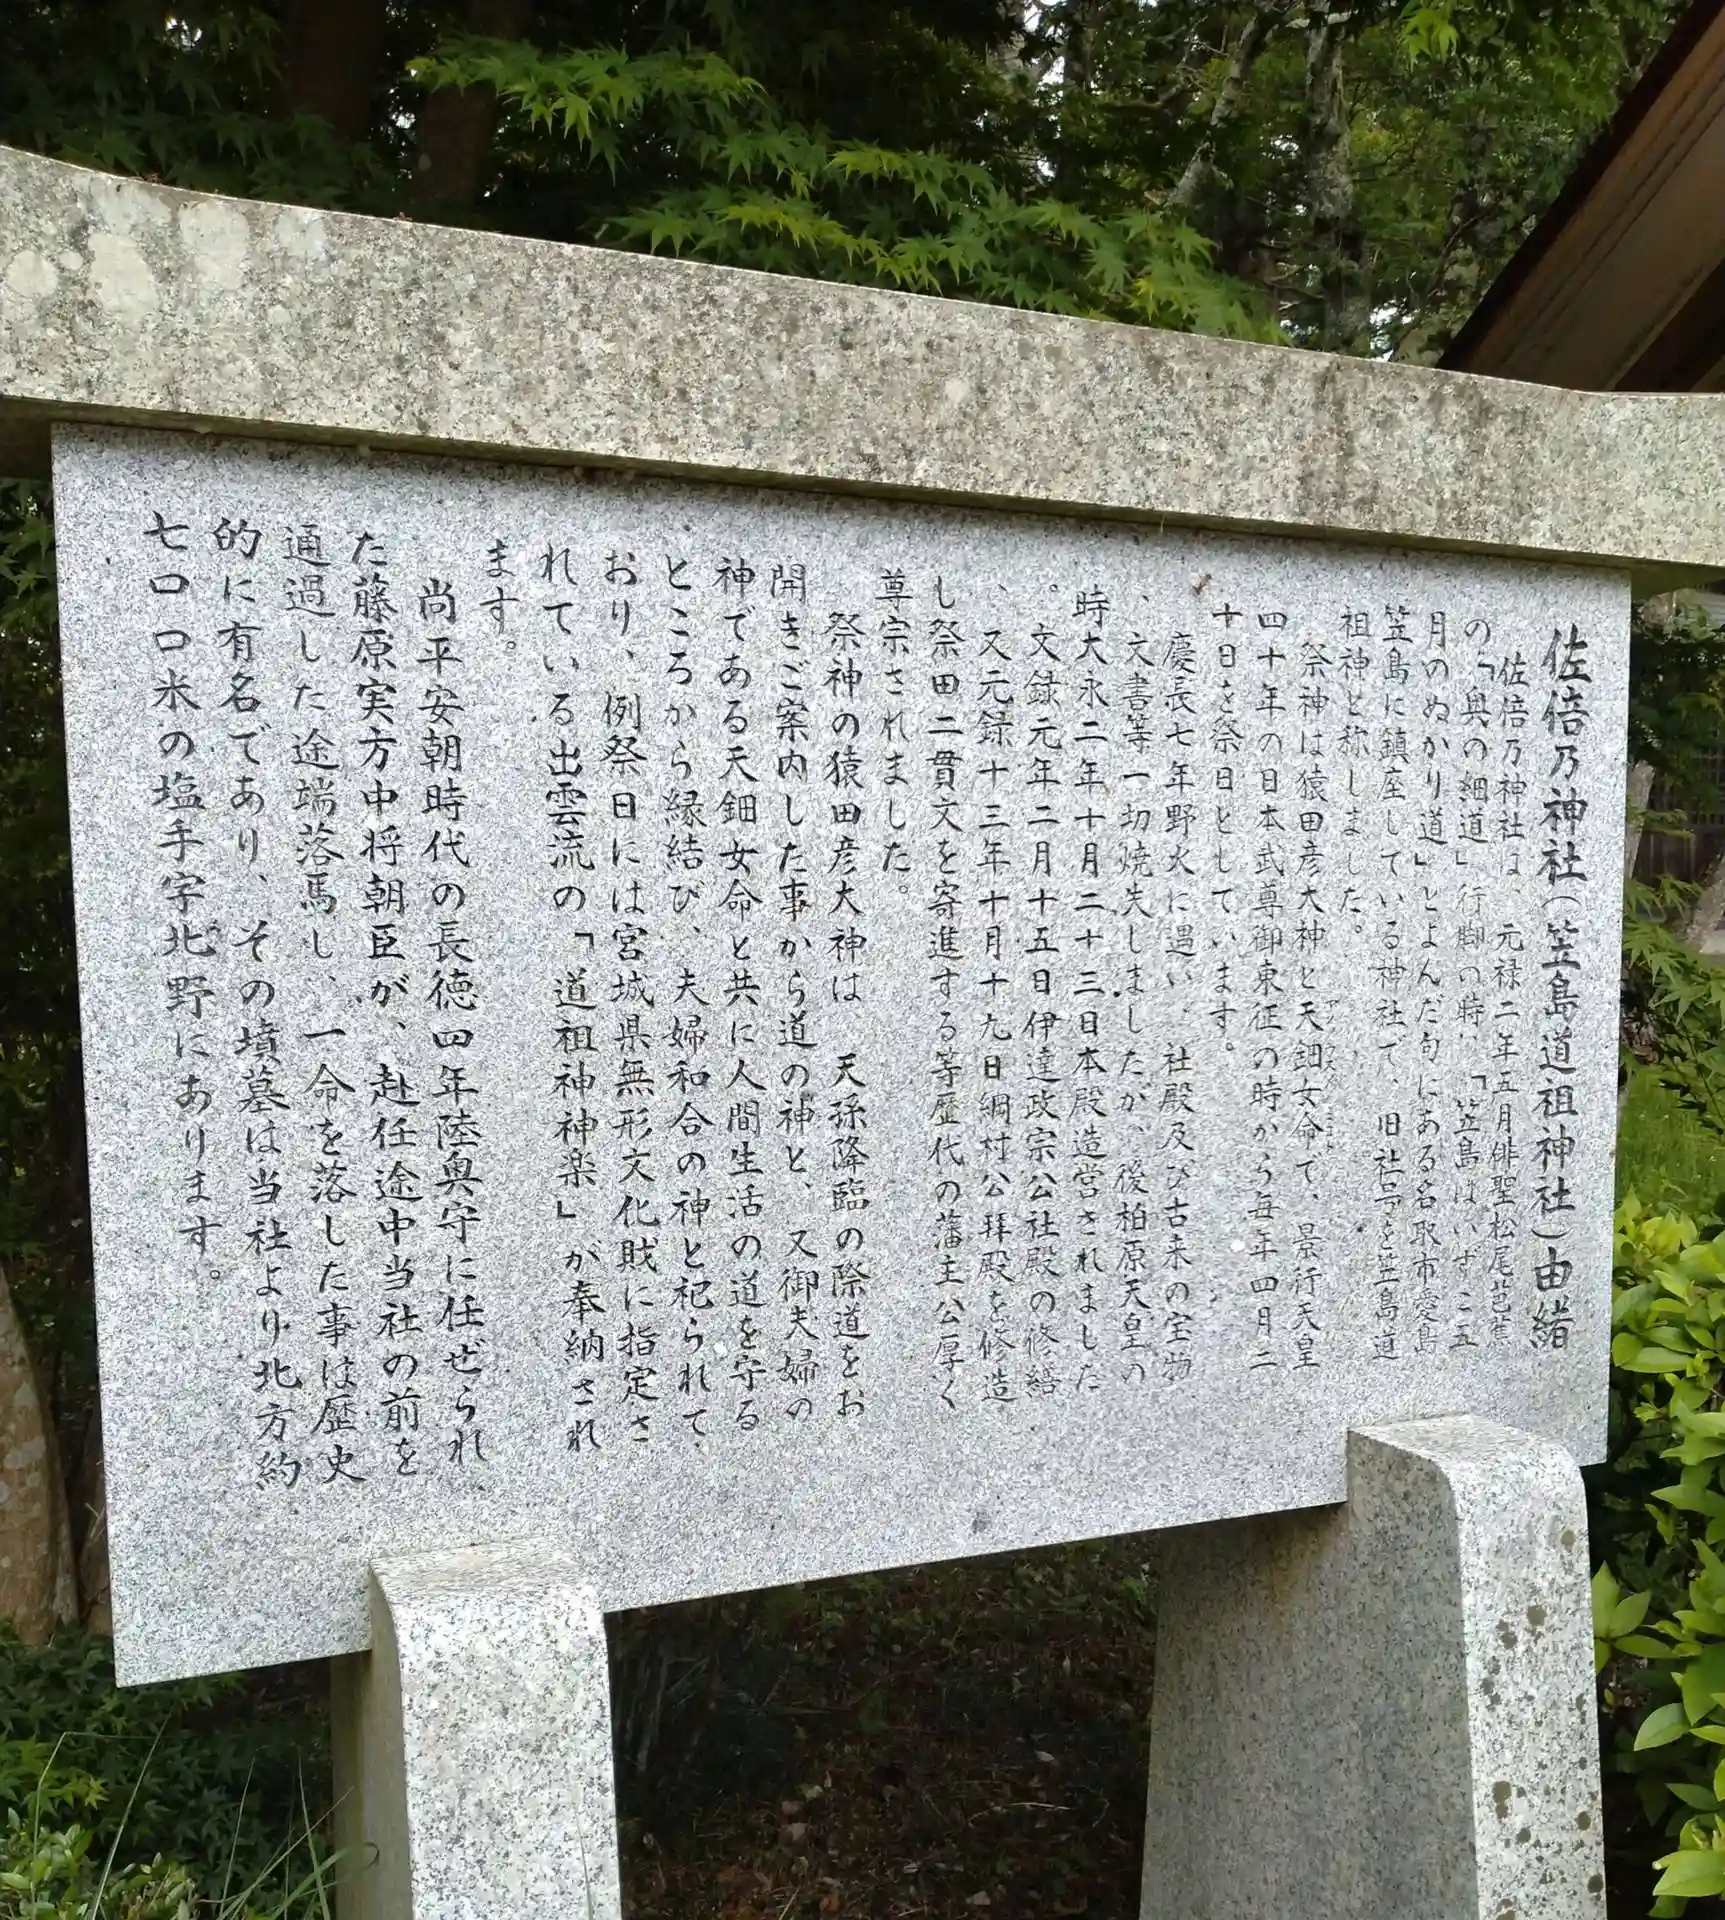 佐倍乃神社(笠島道祖神社)由緒
佐倍乃神社は、元禄二年五月俳聖松尾芭蕉
の「奥の細道」行脚の時、「笠島はいずこ五
月のぬかり道」とよんだ句にある名取市愛島
笠島に鎮座している神社で、旧社号を笠島道
祖神と称しました。
祭神は猿田彦大神と天鈿女命で、景行天皇
四十年の日本武尊御東征の時から毎年四月二
十日を祭日としています。
慶長七年野火に遇い、社殿及び古来の宝物
、文書等一切焼失しましたが、後柏原天皇の
時大永二年十月二十三日本殿造営されました
。文録元年二月十五日伊達政宗公社殿の修繕
、又元録十三年十月十九日綱村公拝殿を修造
し祭田二貫文を寄進する等歴代の藩主公厚く
尊宗されました。
祭神の猿田彦大神は、天孫降臨の際道をお
開きご案内した事から道の神と、又御夫婦の
神である天鈿女命と共に人間生活の道を守る
ところから縁結び、夫婦和合の神と祀られて
おり、例祭日には宮城県無形文化財に指定さ
れている出雲流の「道祖神神楽」が奉納され
ます。
尚平安朝時代の長徳四年陸奥守に任ぜられ、
た藤原実方中将朝臣が、赴任途中当社の前を
通過した途端落馬し、一命を落した事は歴史
的に有名であり、その墳墓は当社より北方約
七〇〇米の塩手字北野にあります。